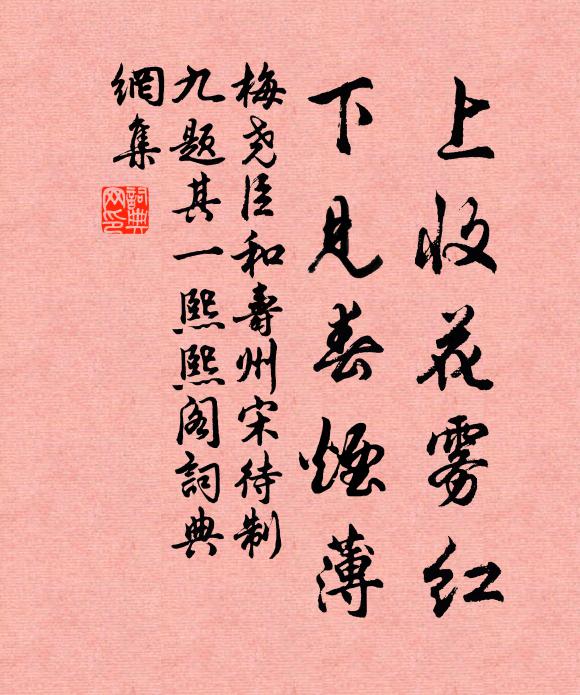 上收花雾红
下见春烟薄
梅尧臣和寿州宋待制
九题其一熙熙阁词典
網集
詞典网印